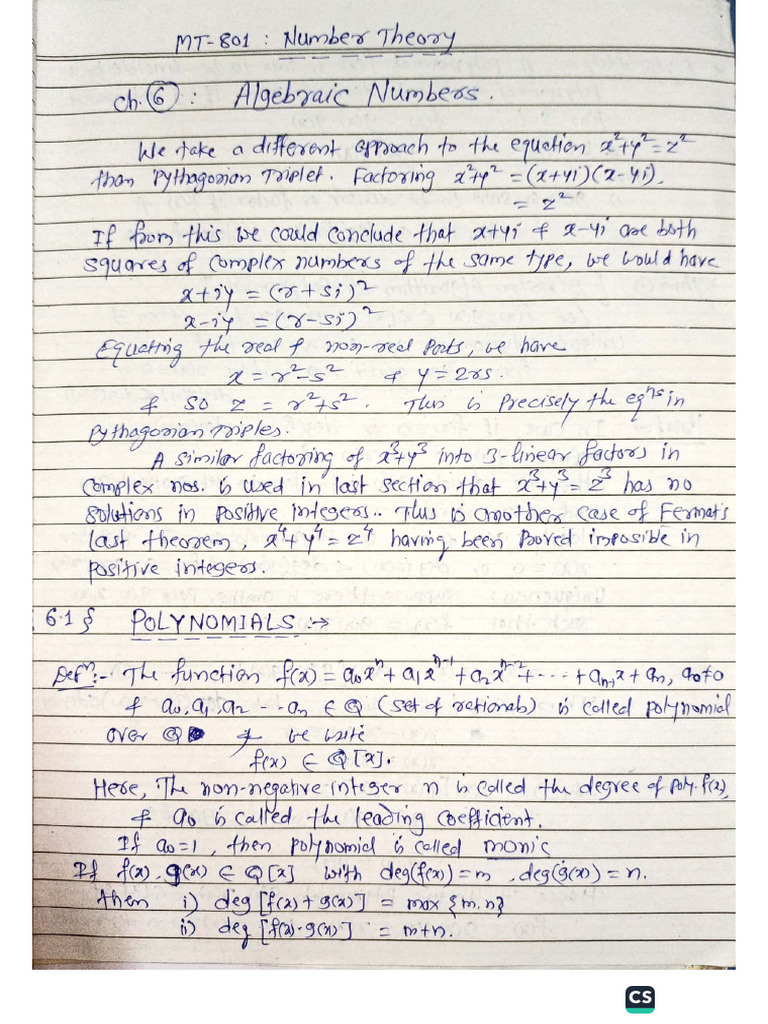 MT-801 : Number Theory
Ch. ⑥ : Algebraic Numbers.
We take a different approach to the equation x²+y²=z²
than Pythagorian Triplet. Factoring x²+y² = (x+yi)(x-yi).
= z²
If from this we could conclude that x+yi & x-yi are both
squares of complex numbers of the same type, we would have
x+iy = (r+si)²
x-iy = (r-si)²
Equating the real & non-real parts, we have
x = r²-s² & y = 2rs.
& so z = r²+s². This is precisely the eqⁿs in
Pythagorian Triples.
A similar factoring of x³+y³ into 3-linear factors in
complex nos. is used in last section that x³+y³=z³ has no
solutions in positive integers.. This is another case of Fermat's
last theorem, x⁴+y⁴=z⁴ having been proved imposible in
positive integers.
6.1 § POLYNOMIALS :→
Defⁿ:- The function f(x) = a₀xⁿ + a₁xⁿ⁻¹ + a₂xⁿ⁻² + --- + aₙ₋₁x + aₙ, a₀≠0
& a₀, a₁, a₂ --- aₙ ∈ Q (set of rationals) is called polynomial
over Q & we write
f(x) ∈ Q[x].
Here, The non-negative integer n is called the degree of poly. f(x),
& a₀ is called the leading coefficient.
If a₀=1, then polynomial is called monic
If f(x), g(x) ∈ Q[x] with deg(f(x)) = m, deg(g(x)) = n.
then i) deg [f(x) + g(x)] = max {m, n}
ii) deg [f(x)·g(x)] = m+n.
CS